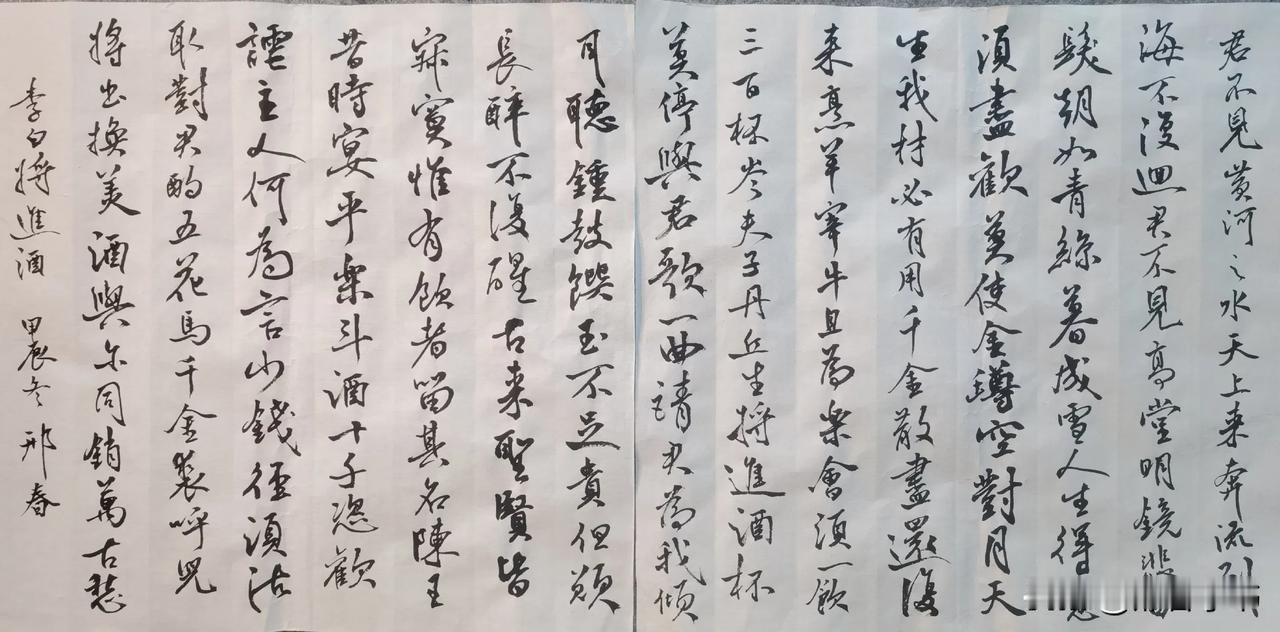 君不見黃河之水天上来奔流到
海不復迴君不見高堂明鏡悲
髮朝如青絲暮成雪人生得意
須盡歡莫使金罇空對月天
生我材必有用千金散盡還復
来烹羊宰牛且為樂會須一飲
三百杯岑夫子丹丘生將進酒杯
莫停與君歌一曲請君為我傾
耳聽鍾鼓饌玉不足貴但願
長醉不復醒古来聖賢皆
寂寞惟有飲者留其名陳王
昔時宴平樂斗酒十千恣歡
謔主人何為言少錢徑須沽
取對君酌五花馬千金裘呼兒
將出換美酒與尔同銷萬古愁
李白將進酒 甲辰冬 邢春